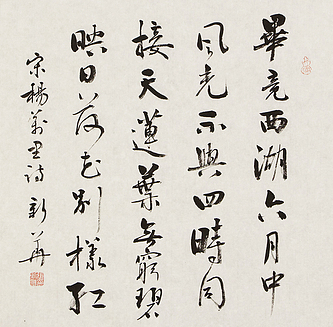 畢竟西湖六月中
風光不與四時同
接天蓮葉無窮碧
映日荷花別樣紅
宋楊萬里詩 新華